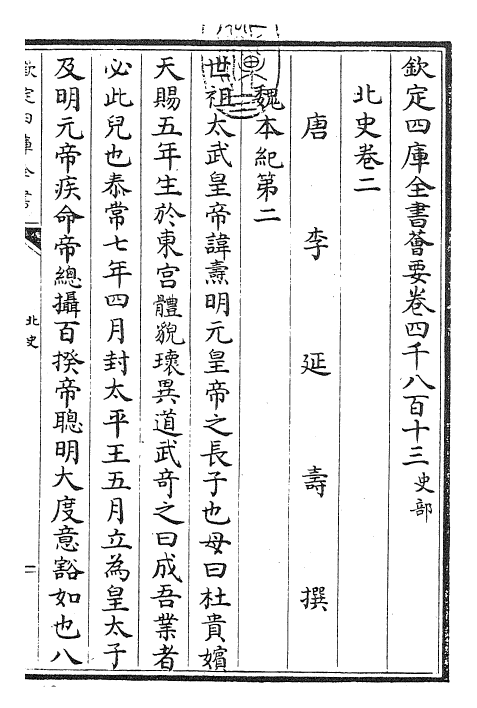 欽定四庫全書薈要卷四千八百十三史部
北史卷二
唐李延壽撰
魏本紀第二
世祖太武皇帝諱燾明元皇帝之長子也母曰杜貴嬪
天賜五年生於東宫體貌瓌異道武奇之曰成吾業者
必此兒也泰常七年四月封太平王五月立為皇太子
及明元帝疾命帝總攝百揆帝聰明大度意豁如也八
欽定四庫全書
北史
一